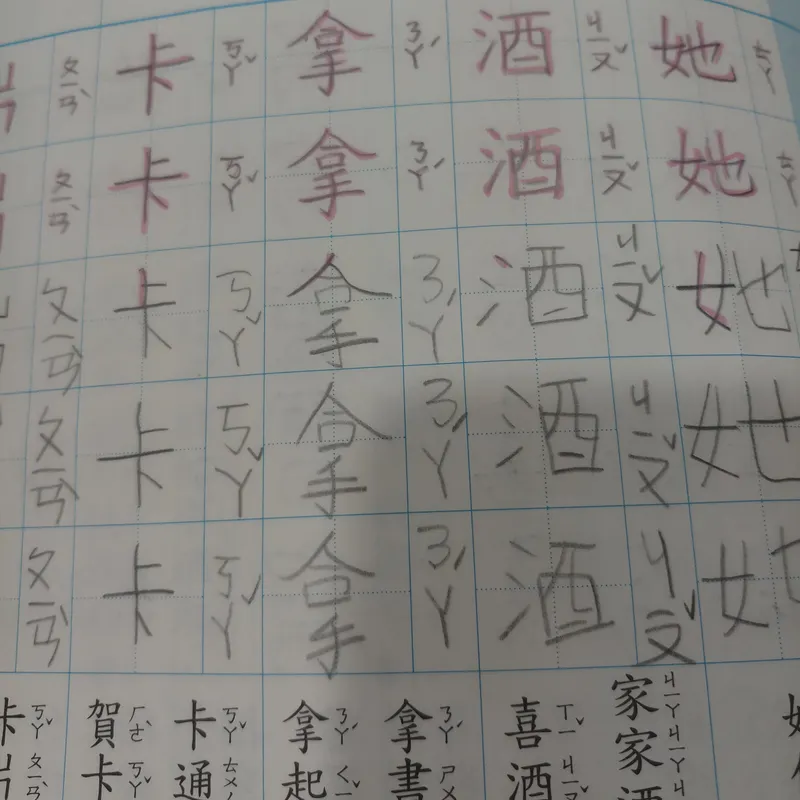 ㄆㄧㄢˋ 卡 ㄎㄚˇ 拿 ㄋㄚˊ 酒 ㄐㄧㄡˇ 她 ㄊㄚ
ㄆㄧㄢˋ 卡 ㄎㄚˇ 拿 ㄋㄚˊ 酒 ㄐㄧㄡˇ 她 ㄊㄚ
ㄆㄧㄢˋ 卡 ㄎㄚˇ 拿 ㄋㄚˊ 酒 ㄐㄧㄡˇ 她
ㄆㄧㄢˋ 卡 ㄎㄚˇ 拿 ㄋㄚˊ 酒 ㄐㄧㄡˇ 她
ㄆㄧㄢˋ 卡 ㄎㄚˇ 拿 ㄋㄚˊ 酒 ㄐㄧㄡˇ 她
卡 ㄎㄚˇ 賀 ㄏㄜˋ 卡 ㄎㄚˇ 拿 ㄋㄚˊ 拿 ㄋㄚˊ 喜 ㄒㄧˇ 家 ㄐㄧㄚ
片 ㄆㄧㄢˋ 卡 ㄎㄚˇ 通 起 ㄑㄧˇ 書 ㄕㄨ 酒 ㄐㄧㄡˇ 家 ㄐㄧㄚ
酒